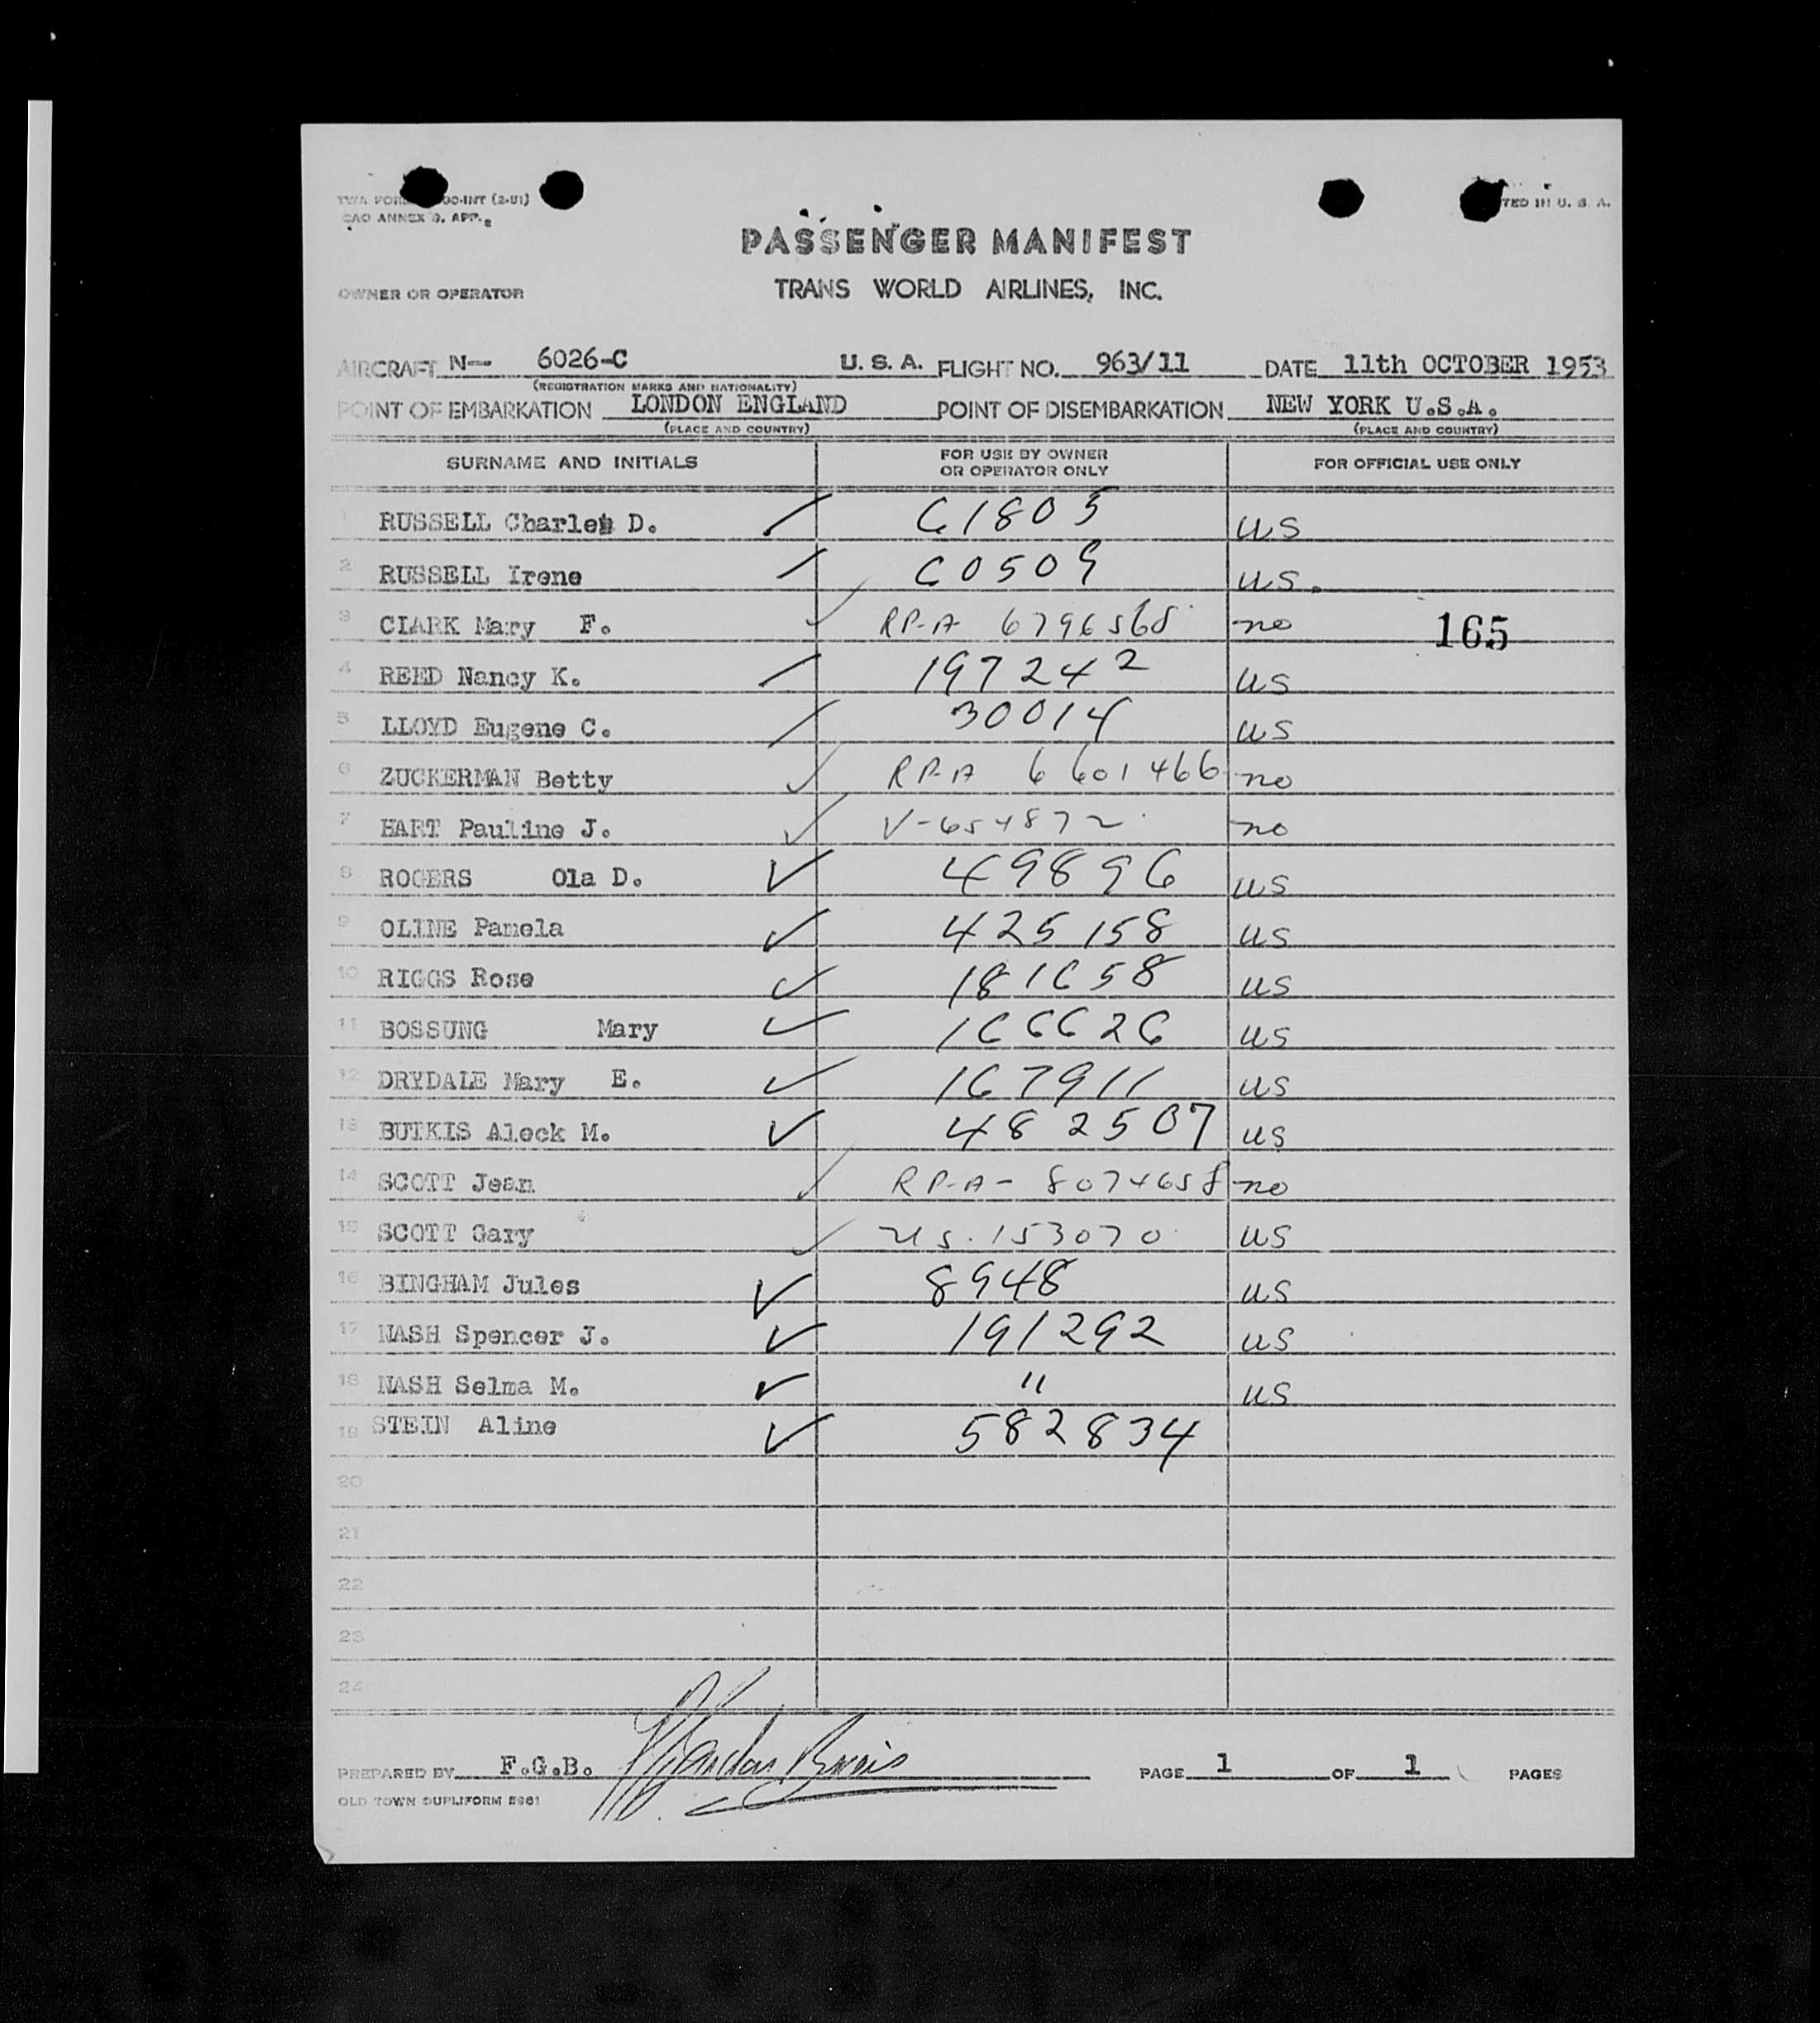 TWA FORM 00-INT (2-51)
CAO ANNEX 9. APP. 2
TED IN U. S. A.
PASSENGER MANIFEST
OWNER OR OPERATOR TRANS WORLD AIRLINES, INC.
AIRCRAFT N-- 6026-C U. S. A. FLIGHT NO. 963/11 DATE 11th OCTOBER 1953
(REGISTRATION MARKS AND NATIONALITY)
POINT OF EMBARKATION LONDON ENGLAND POINT OF DISEMBARKATION NEW YORK U.S.A.
(PLACE AND COUNTRY) (PLACE AND COUNTRY)
SURNAME AND INITIALS FOR USE BY OWNER OR OPERATOR ONLY FOR OFFICIAL USE ONLY
1 RUSSELL Charles D. C1805 US
2 RUSSELL Irene C0509 US.
3 CLARK Mary F. RP-A 6796568 no 165
4 REED Nancy K. 197242 US
5 LLOYD Eugene C. 30014 US
6 ZUCKERMAN Betty RP-A 6601466 no
7 HART Pauline J. V-654872 no
8 ROGERS Ola D. 49896 US
9 OLINE Pamela 425158 US
10 RIGGS Rose 181658 US
11 BOSSUNG Mary 166626 US
12 DRYDALE Mary E. 167911 US
13 BUTKIS Aleck M. 482507 US
14 SCOTT Jean RP-A- 8074658 no
15 SCOTT Gary US. 153070 US
16 BINGHAM Jules 8948 US
17 NASH Spencer J. 191292 US
18 NASH Selma M. " US
19 STEIN Aline 582834
20
21
22
23
24
PREPARED BY F.G.B. PAGE 1 OF 1 PAGES
OLD TOWN DUPLIFORM 5961